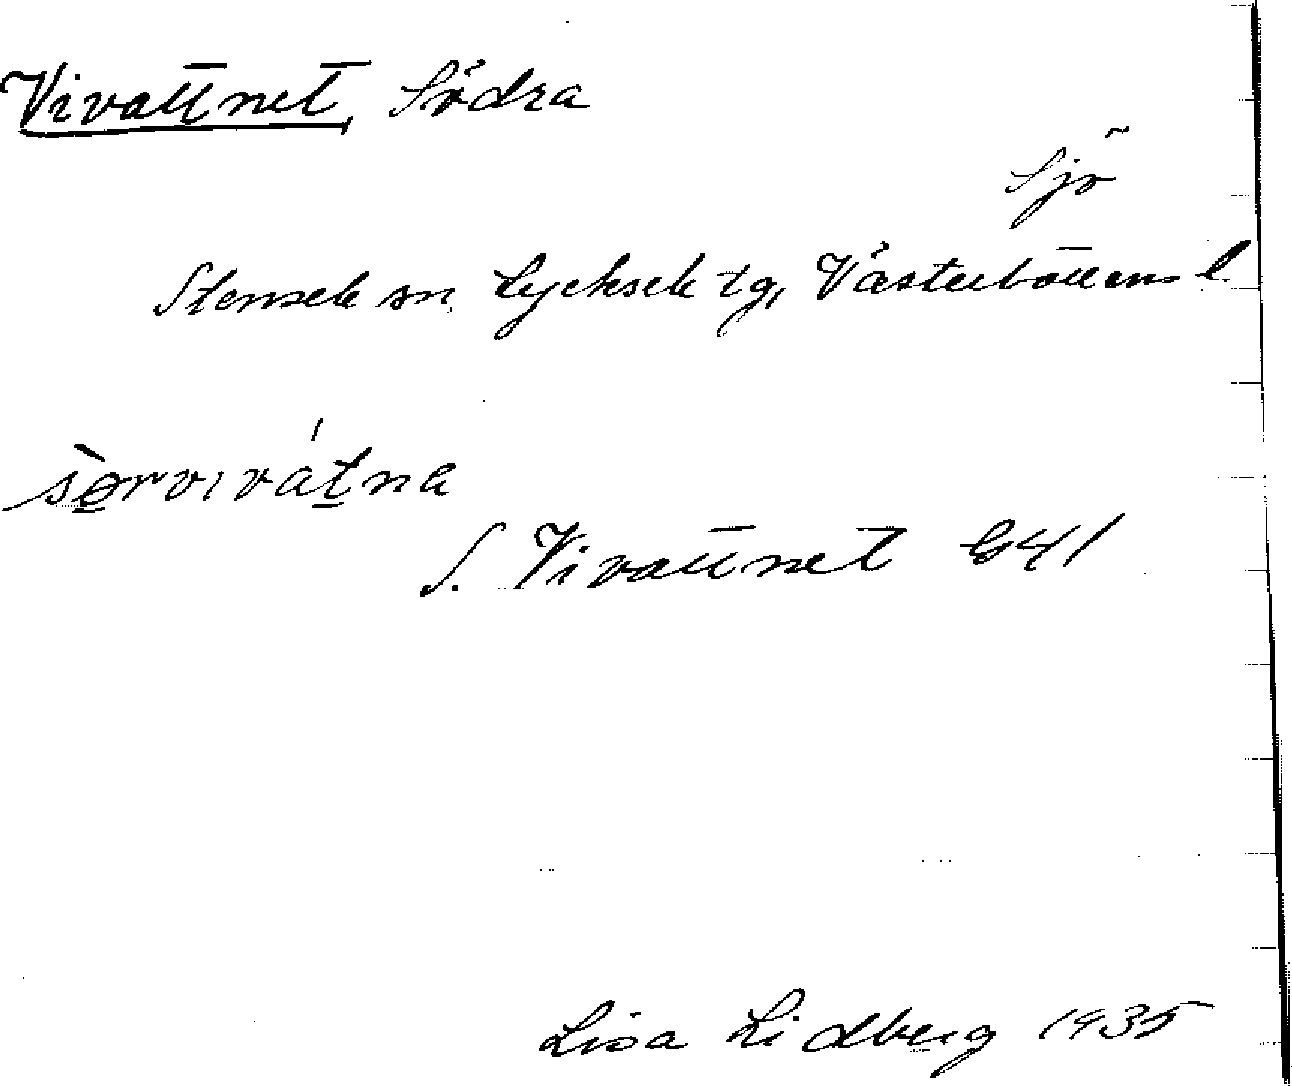 Vivattnet, Södra
Sjö
Stensele sn, Lycksele tg, Västerbottens l.
sørvıvátna
S. Vivattnet G41
Lisa Lidberg 1935